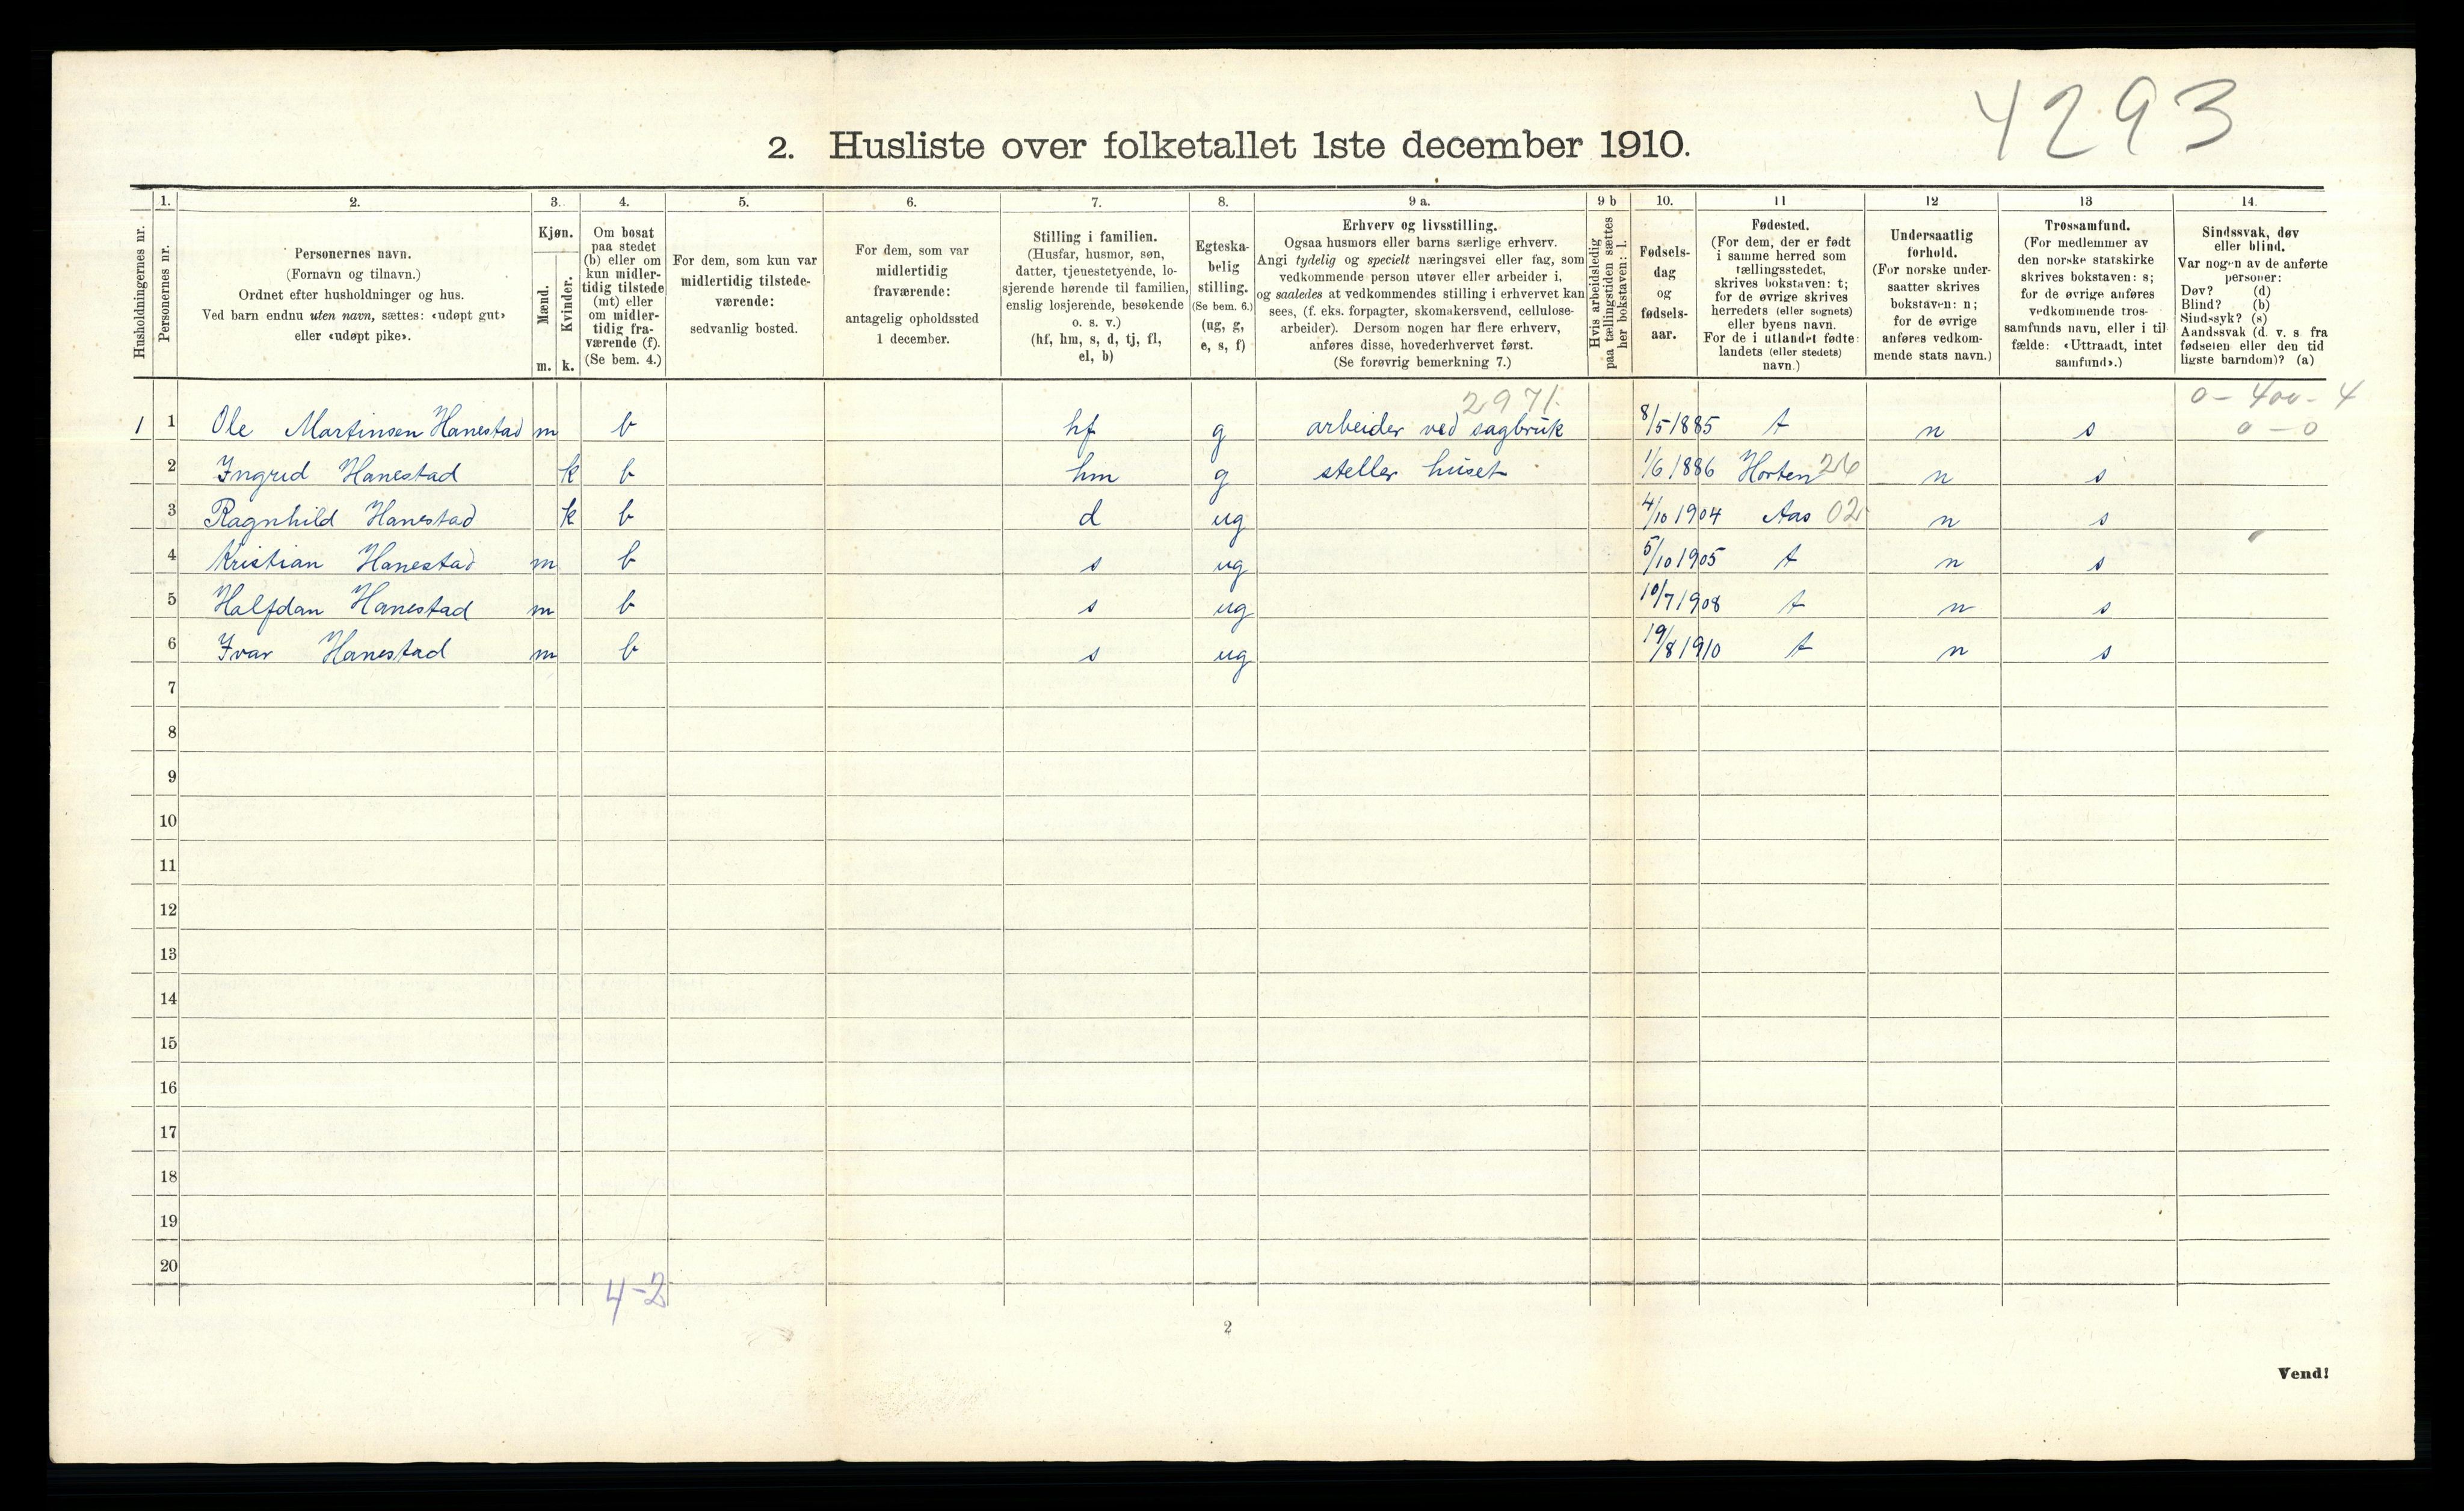 4293
2. Husliste over folketallet 1ste december 1910.
Husholdningernes nr.
1.
Personernes nr.
2.
Personernes navn.
(Fornavn og tilnavn.)
Ordnet efter husholdninger og hus.
Ved barn endnu uten navn, sættes: «udøpt gut»
eller «udøpt pike».
3.
Kjøn.
Mænd.
Kvinder.
m.
k.
4.
Om bosat
paa stedet
(b) eller om
kun midler-
tidig tilstede
(mt) eller
om midler-
tidig fra-
værende (f).
(Se bem. 4.)
5.
For dem, som kun var
midlertidig tilstede-
værende:
sedvanlig bosted.
6.
For dem, som var
midlertidig
fraværende:
antagelig opholdssted
1 december.
7.
Stilling i familien.
(Husfar, husmor, søn,
datter, tjenestetyende, lo-
sjerende hørende til familien,
enslig losjerende, besøkende
o. s. v.)
(hf, hm, s, d, tj, fl,
el, b)
8.
Egteska-
belig
stilling.
(Se bem. 6.)
(ug, g,
e, s, f)
9 a.
Erhverv og livsstilling.
Ogsaa husmors eller barns særlige erhverv.
Angi tydelig og specielt næringsvei eller fag, som
vedkommende person utøver eller arbeider i,
og saaledes at vedkommendes stilling i erhvervet kan
sees, (f. eks. forpagter, skomakersvend, cellulose-
arbeider). Dersom nogen har flere erhverv,
anføres disse, hovederhvervet først.
(Se forøvrig bemerkning 7.)
9 b
Hvis arbeidsledig
paa tællingstiden sættes
her bokstaven: l.
10.
Fødsels-
dag
og
fødsels-
aar.
11
Fødested.
(For dem, der er født
i samme herred som
tællingsstedet,
skrives bokstaven: t;
for de øvrige skrives
herredets (eller sognets)
eller byens navn.
For de i utlandet fødte:
landets (eller stedets)
navn.)
12
Undersaatlig
forhold.
(For norske under-
saatter skrives
bokstaven: n;
for de øvrige
anføres vedkom-
mende stats navn.)
13
Trossamfund.
(For medlemmer av
den norske statskirke
skrives bokstaven: s;
for de øvrige anføres
vedkommende tros-
samfunds navn, eller i til-
fælde: «Uttraadt, intet
samfund».)
14.
Sindssvak, døv
eller blind.
Var nogen av de anførte
personer:
Døv? (d)
Blind? (b)
Sindssyk? (s)
Aandssvak (d. v. s fra
fødselen eller den tid
ligste barndom)? (a)
2971. 0 - 400 - 4
1 1 Ole Martinsen Hanestad m b hf g arbeider ved sagbruk 8/5 1885 t n s 0 - 0
2 Ingrid Hanestad k b hm g steller huset 1/6 1886 Horten 26 n s
3 Ragnhild Hanestad k b d ug 4/10 1904 Aas 02 n s
4 Kristian Hanestad m b s ug 5/10 1905 t n s
5 Halfdan Hanestad m b s ug 10/7 1908 t n s
6 Ivar Hanestad m b s ug 19/8 1910 t n s
7
8
9
10
11
12
13
14
15
16
17
18
19
20
4-2
2
Vend!